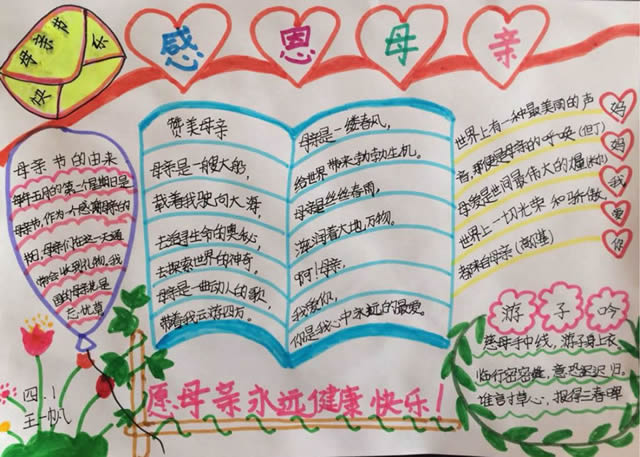 母亲节快乐
感恩母亲
母亲节的由来
每年五月的第二个星期日是
母亲节,作为一个感恩母亲的
节日,母亲们在这一天通
常会收到礼物,我
国的母亲花是
忘忧草。
赞美母亲
母亲是一艘大船,
载着我驶向大海,
去追寻生命的奥秘,
去探索世界的神奇,
母亲是一曲动人的歌,
带着我云游四方。
母亲是一缕春风,
给世界带来勃勃生机。
母亲是丝丝春雨,
滋润着大地万物。
啊!母亲,
我爱你,
你是我心中永远的最爱。
世界上有一种最美丽的声
音,那便是母亲的呼唤(但丁)
母爱是世间最伟大的力量
世界上一切光荣和骄傲,
都来自母亲
妈
妈
我
爱
你
游子吟
慈母手中线,游子身上衣
临行密密缝,意恐迟迟归,
谁言寸草心,报得三春晖
四.1
王一帆
愿母亲永远健康快乐!